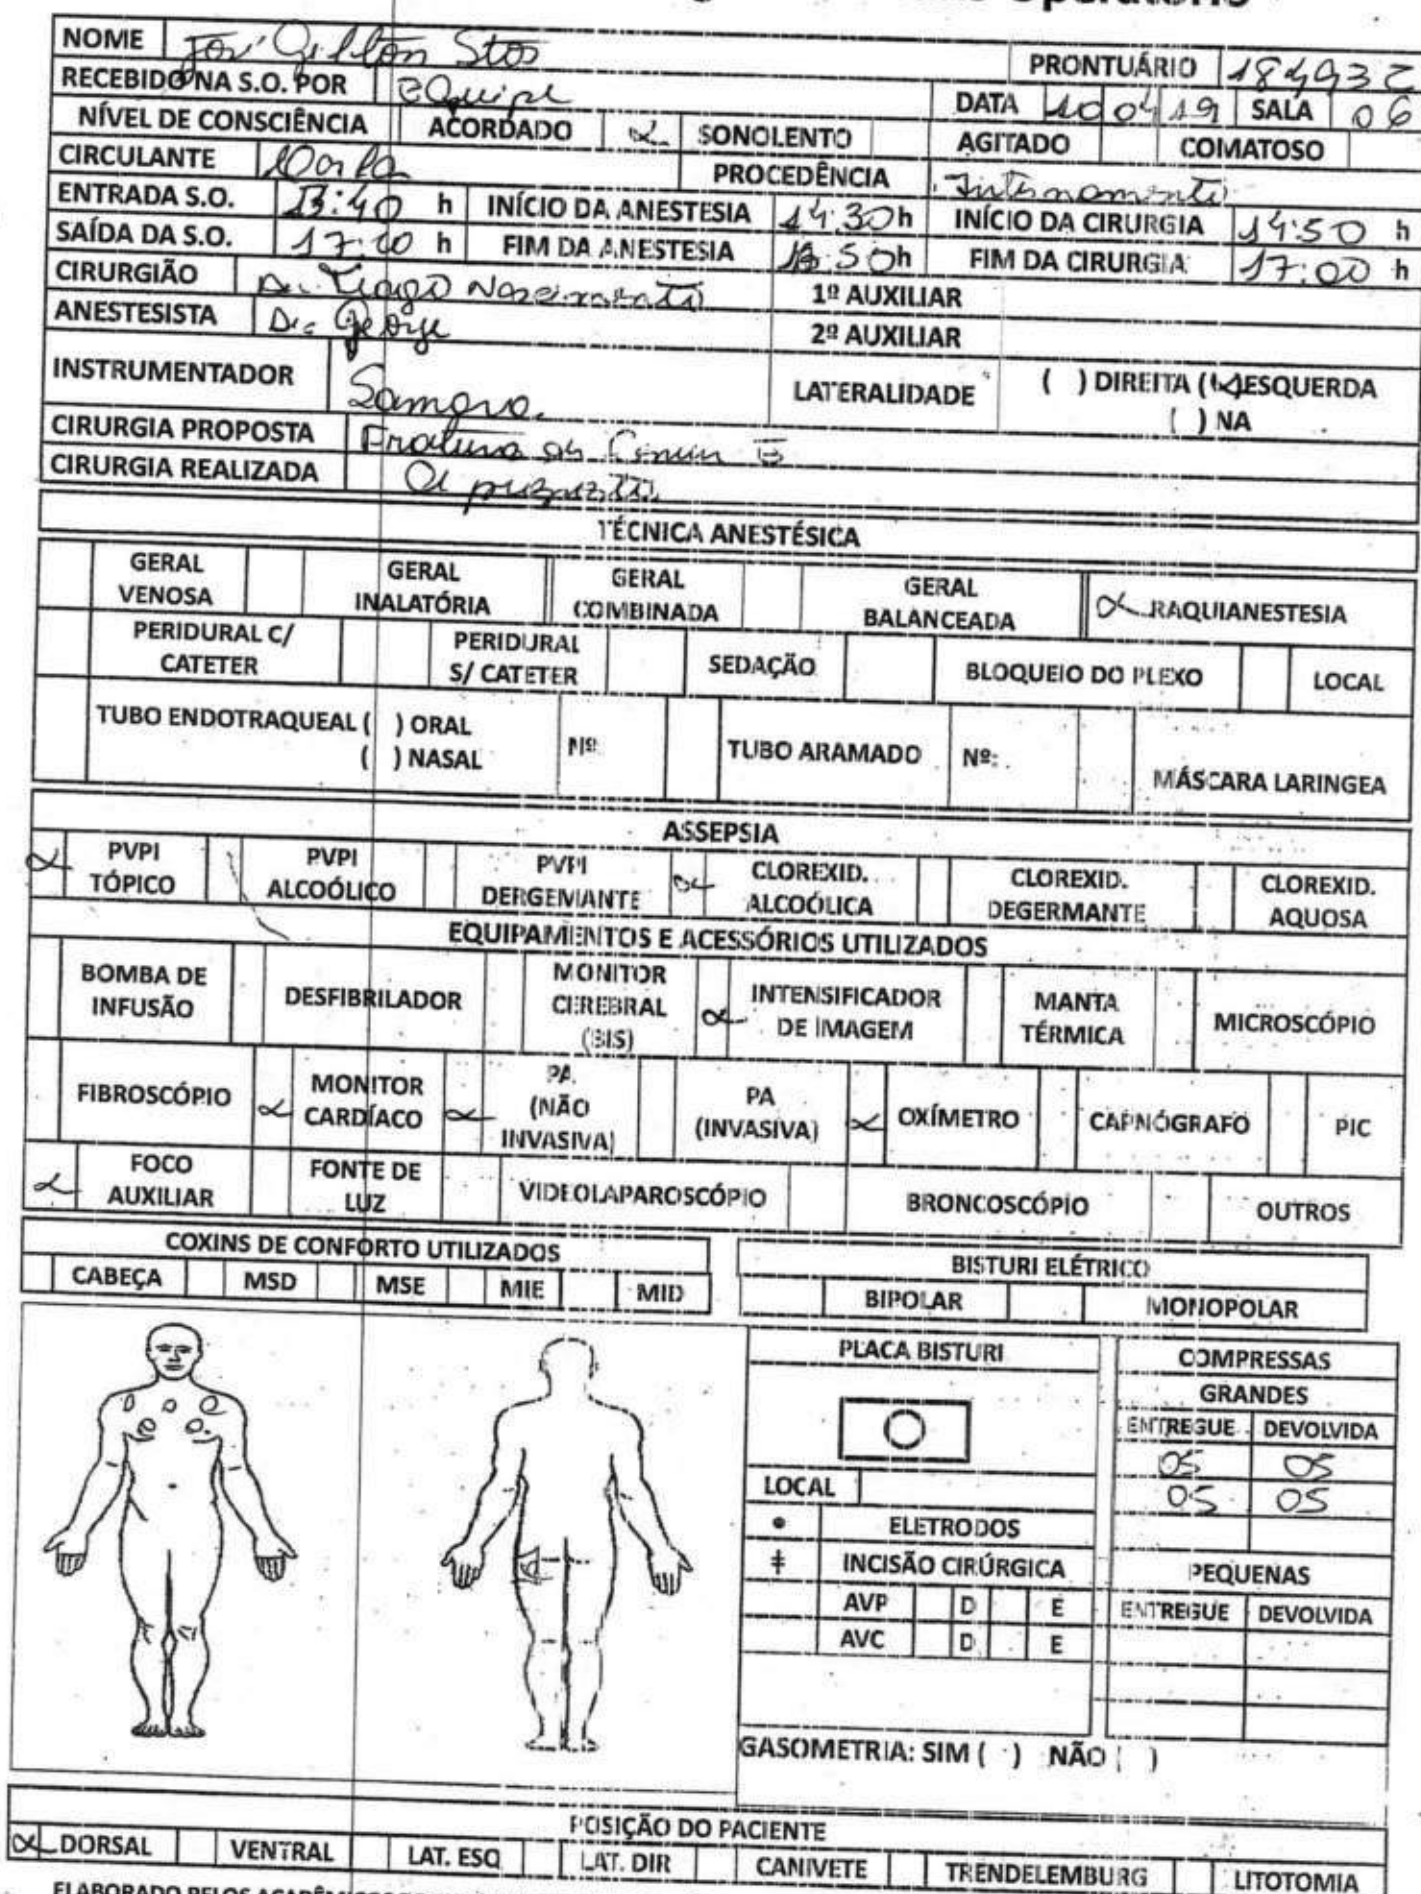 Operatório
NOME José Gilton Stos PRONTUÁRIO 184932
RECEBIDO NA S.O. POR Equipe DATA 10 04 19 SALA 06
NÍVEL DE CONSCIÊNCIA ACORDADO X SONOLENTO AGITADO COMATOSO
CIRCULANTE PROCEDÊNCIA Internamento
ENTRADA S.O. 13:40 h INÍCIO DA ANESTESIA 14:30 h INÍCIO DA CIRURGIA 14:50 h
SAÍDA DA S.O. 17:10 h FIM DA ANESTESIA :50 h FIM DA CIRURGIA 17:00 h
CIRURGIÃO Dr. Tiago Nascimento 1º AUXILIAR
ANESTESISTA Dr. George 2º AUXILIAR
INSTRUMENTADOR Samara LATERALIDADE ( ) DIREITA (X) ESQUERDA
( ) NA
CIRURGIA PROPOSTA Fratura de Fêmur E
CIRURGIA REALIZADA
TÉCNICA ANESTÉSICA
GERAL VENOSA GERAL INALATÓRIA GERAL COMBINADA GERAL BALANCEADA X RAQUIANESTESIA
PERIDURAL C/ CATETER PERIDURAL S/ CATETER SEDAÇÃO BLOQUEIO DO PLEXO LOCAL
TUBO ENDOTRAQUEAL ( ) ORAL
( ) NASAL Nº TUBO ARAMADO Nº: MÁSCARA LARINGEA
ASSEPSIA
X PVPI TÓPICO PVPI ALCOÓLICO PVPI DERGEMANTE X CLOREXID. ALCOÓLICA CLOREXID. DEGERMANTE CLOREXID. AQUOSA
EQUIPAMENTOS E ACESSÓRIOS UTILIZADOS
BOMBA DE INFUSÃO DESFIBRILADOR MONITOR CEREBRAL (BIS) X INTENSIFICADOR DE IMAGEM MANTA TÉRMICA MICROSCÓPIO
FIBROSCÓPIO X MONITOR CARDÍACO X PA (NÃO INVASIVA) PA (INVASIVA) X OXÍMETRO CAPNÓGRAFO PIC
X FOCO AUXILIAR FONTE DE LUZ VIDEOLAPAROSCÓPIO BRONCOSCÓPIO OUTROS
COXINS DE CONFORTO UTILIZADOS BISTURI ELÉTRICO
CABEÇA MSD MSE MIE MID BIPOLAR MONOPOLAR
PLACA BISTURI COMPRESSAS
GRANDES
ENTREGUE DEVOLVIDA
05 05
LOCAL 05 05
ELETRODOS
INCISÃO CIRÚRGICA PEQUENAS
AVP D E ENTREGUE DEVOLVIDA
AVC D E
GASOMETRIA: SIM ( ) NÃO ( )
POSIÇÃO DO PACIENTE
X DORSAL VENTRAL LAT. ESQ LAT. DIR CANIVETE TRENDELEMBURG LITOTOMIA
ELABORADO PELOS